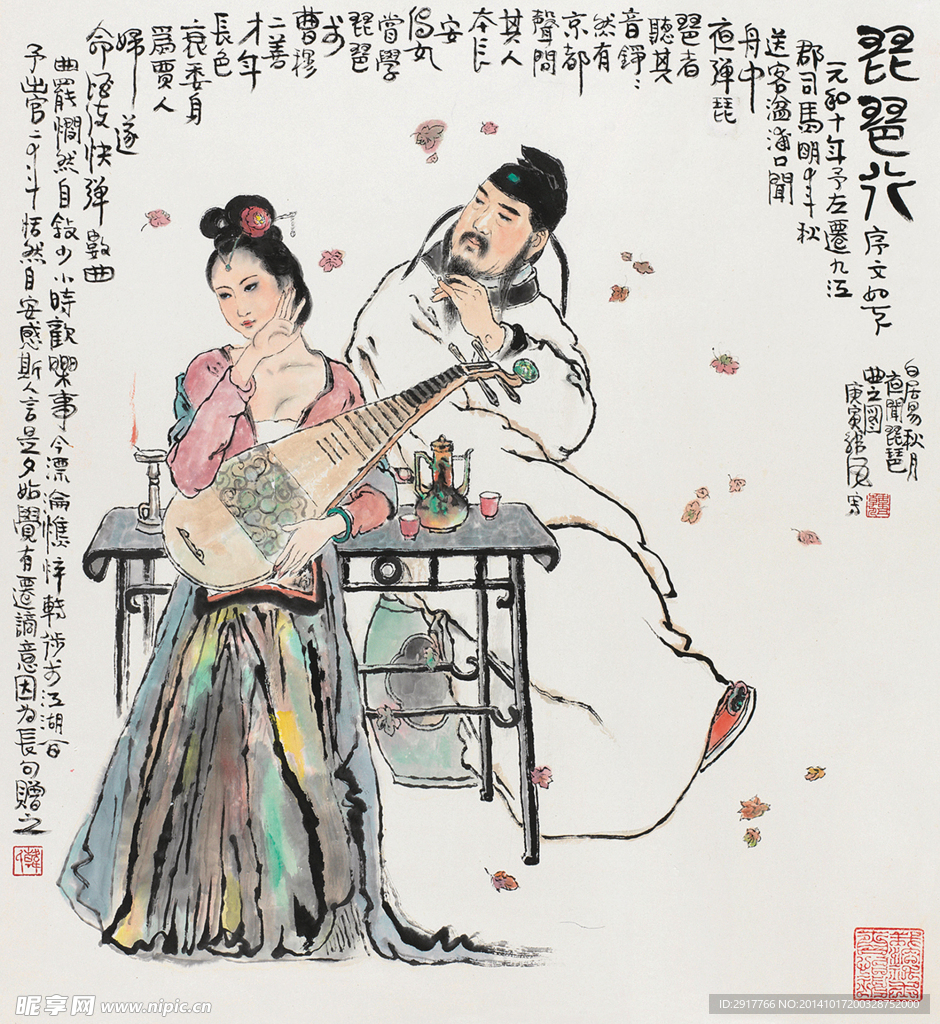 琵琶行
序文如下
元和十年予左遷九江
郡司馬明年秋
送客湓浦口聞
舟中
夜彈琵
琶者
聽其
音錚〻
然有
京都
聲問
其人
本長
安
倡女
嘗學
琵琶
於
曹穆
二善
才年
長色
衰委身
為賈人
婦
遂
命酒使快彈數曲
曲罷憫然自敍少小時歡樂事今漂淪憔悴轉徙於江湖間
予出官二年恬然自安感斯人言是夕始覺有遷謫意因為長句贈之
白居易秋月
夜聞琵琶
曲之圖
庚寅
昵享网 www.nipic.cn
ID:2917766 NO:20141017200328752000